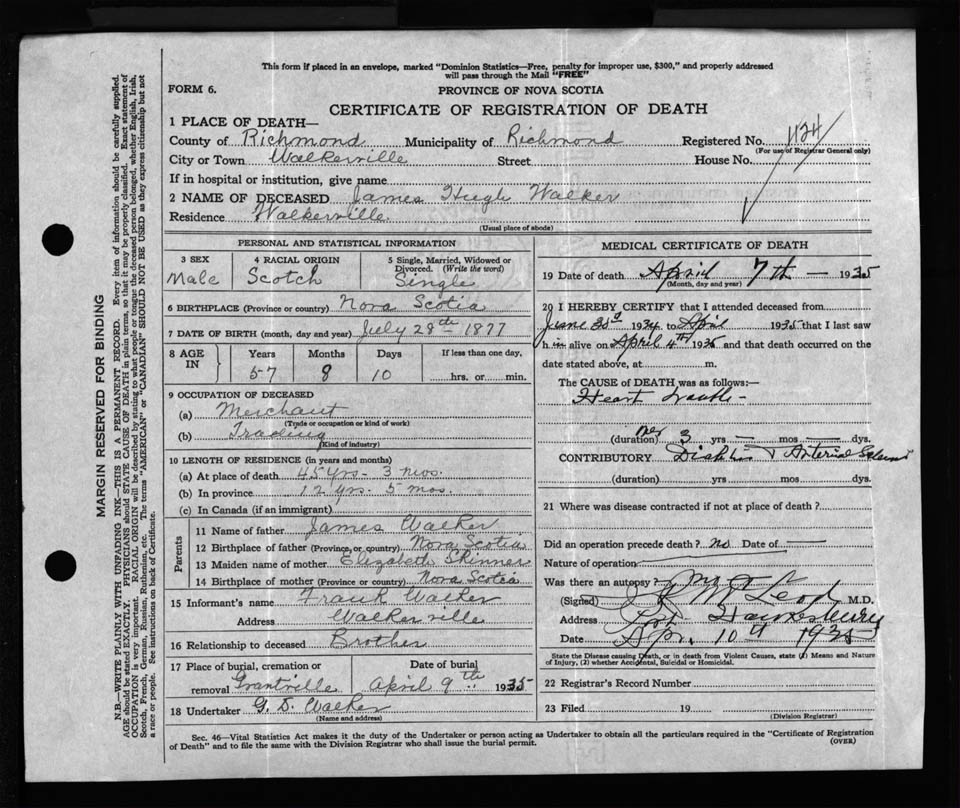 This form if placed in an envelope, marked "Dominion Statistics—Free, penalty for improper use, $300," and properly addressed
will pass through the Mail "FREE"
FORM 6.
PROVINCE OF NOVA SCOTIA
CERTIFICATE OF REGISTRATION OF DEATH
1 PLACE OF DEATH—
County of Richmond Municipality of Richmond Registered No. 1124
(For use of Registrar General only)
City or Town Walkerville Street House No.
If in hospital or institution, give name
2 NAME OF DECEASED James Hugh Walker
Residence Walkerville
(Usual place of abode)
PERSONAL AND STATISTICAL INFORMATION
3 SEX 4 RACIAL ORIGIN 5 Single, Married, Widowed or
Divorced. (Write the word)
Male Scotch Single
6 BIRTHPLACE (Province or country) Nova Scotia
7 DATE OF BIRTH (month, day and year) July 28th 1877
8 AGE IN Years Months Days If less than one day,
57 8 10 hrs. or min.
9 OCCUPATION OF DECEASED
(a) Merchant
(Trade or occupation or kind of work)
(b) Trading
(Kind of industry)
10 LENGTH OF RESIDENCE (in years and months)
(a) At place of death 45 yrs - 3 mos.
(b) In province 12 yrs. 5 mos.
(c) In Canada (if an immigrant)
Parents
11 Name of father James Walker
12 Birthplace of father (Province or country) Nova Scotia
13 Maiden name of mother Elizabeth Skinner
14 Birthplace of mother (Province or country) Nova Scotia
15 Informant's name Frank Walker
Address Walkerville
16 Relationship to deceased Brother
17 Place of burial, cremation or Date of burial
removal Grantville April 9th 1935
18 Undertaker G. D. Walker
(Name and address)
MEDICAL CERTIFICATE OF DEATH
19 Date of death April 7th - 1935
(Month, day and year)
20 I HEREBY CERTIFY that I attended deceased from
June 1934 to April 1935 that I last saw
h im alive on April 4th 1935 and that death occurred on the
date stated above, at m.
The CAUSE OF DEATH was as follows:—
Heart
(duration) 3 yrs — mos — dys.
CONTRIBUTORY & Arterial
(duration) yrs mos dys.
21 Where was disease contracted if not at place of death?
Did an operation precede death? no Date of —
Nature of operation
Was there an autopsy?
(Signed) McLeod M.D.
Address Port Hawkesbury
Date Apr. 10th 1935
State the Disease causing Death, or in death from Violent Causes, state (1) Means and Nature
of Injury, (2) whether Accidental, Suicidal or Homicidal.
22 Registrar's Record Number
23 Filed 19
(Division Registrar)
Sec. 46—Vital Statistics Act makes it the duty of the Undertaker or person acting as Undertaker to obtain all the particulars required in the "Certificate of Registration
of Death" and to file the same with the Division Registrar who shall issue the burial permit. (OVER)
MARGIN RESERVED FOR BINDING
N.B.—WRITE PLAINLY WITH UNFADING INK—THIS IS A PERMANENT RECORD. Every item of information should be carefully supplied.
AGE should be stated EXACTLY. PHYSICIANS should STATE CAUSE OF DEATH in plain terms, so that it may be properly classified. Exact statement of
OCCUPATION is very important. RACIAL ORIGIN will be described by stating to what people or tongue the deceased person belonged, whether English, Irish,
Scotch, French, German, Russian, Ruthenian, etc. The terms "AMERICAN" or "CANADIAN" SHOULD NOT BE USED as they express citizenship but not
a race or people. See instructions on back of Certificate.